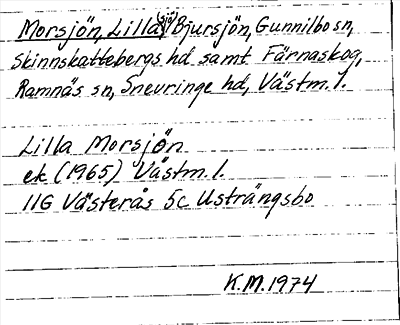 Morsjön, Lilla (sjö) Bjursjön, Gunnilbo sn,
Skinnskattebergs hd samt Färnaskog,
Ramnäs sn, Snevringe hd, Västm. l.
Lilla Morsjön
ek. (1965) Västm. l.
11G Västerås 5c Usträngsbo
K.M. 1974